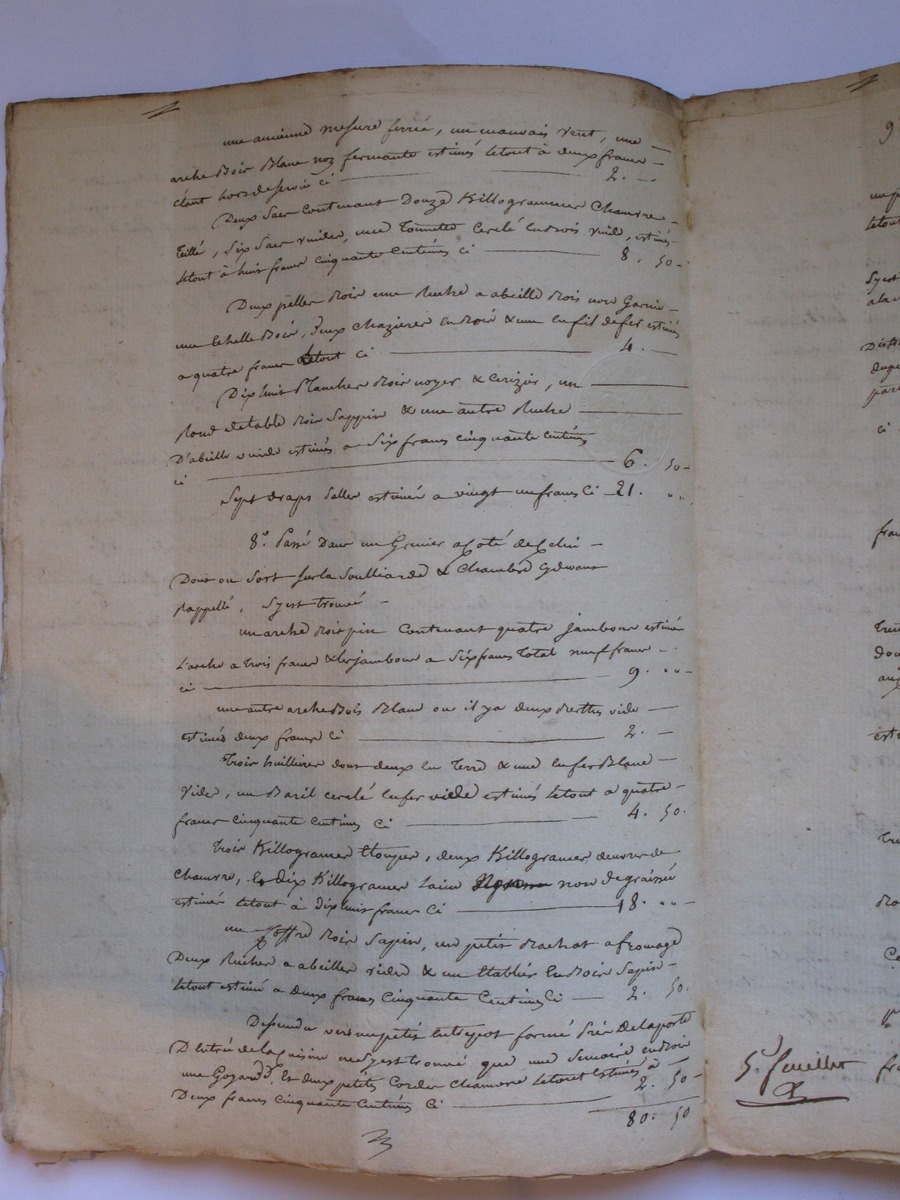 une ancienne mesure ferrée, un mauvais vent, une
arche Bois Blanc noz fermante estimés letout à deux francs
étant hors de service ci 2. "
Deux Sacs Contenant Douze Killogrammes Chanvre
teillé, Six Sacs vuides, une Tonnette Cerclé en bois vuide, estimés
letout à huit francs cinquante Centimes ci 8. 50
Deux pelles Bois une Ruche a abeille Bois non Garnie
une Echelle Bois, deux Chazieres en Bois & une en fil de fer estimés
a quatre francs ci 4. "
Dix huit Planches Bois noyer & Cerizier, un
Rond de table Bois Sappin & une autre Ruche
D'abeille vuide estimés a Six francs cinquante Centimes
ci 6. 50
Sept draps Salles estimés a vingt un francs Ci 21. "
8° Passé Dans un Grenier a Coté de
Dont on Sort sur la Soulliarde & Chambre Cydevant
Rappellé, S'y est trouvé
un arche Bois pin Contenant quatre jambons estimés
L'arche a trois francs & les jambons a Six francs Total neuf francs
ci 9. "
une autre arche Bois Blanc ou il y a deux vide
estimés deux francs Ci 2.
Trois huilliers dont deux En Terre & une En fer Blanc
Vides, un Baril cerclé En fer vuide estimés letout a quatre
francs cinquante Centimes Ci 4. 50.
Trois Killogrames Etoupes, deux Killogrames de
Chanvre, Dix Killogrames Laine non degraissée
estimés letout à Dix huit francs Ci 18. "
un Coffre Bois Sapin, un petit Rachat a fromage
Deux Ruches a abeilles vides & un Etablis En Bois Sapin
letout estimé a Deux francs Cinquante Centimes Ci 2. 50.
Dessendu vers un petit Entrepot formé Près De la porte
D'entrée de la Cuisine ne S'y est trouvé que une Semoire en Bois
une Goyarde, Et deux petites Cordes Chanvre letout Estimés à
Deux francs Cinquante Centimes Ci 2. 50
80. 50
9
letout
S'y est
ci
fran
dou
esti